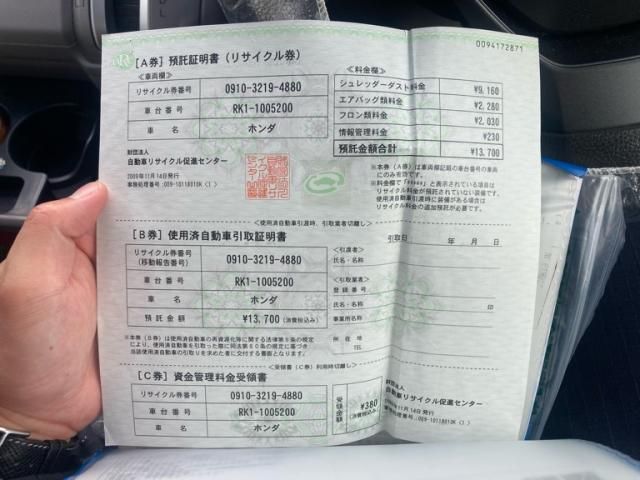 0094172871
[A券] 預託証明書(リサイクル券)
≪車両欄≫
リサイクル券番号 0910-3219-4880
車台番号 RK1-1005200
車名 ホンダ
≪料金欄≫
シュレッダーダスト料金 ¥9,160
エアバッグ類料金 ¥2,280
フロン類料金 ¥2,030
情報管理料金 ¥230
預託金額合計 ¥13,700
財団法人
自動車リサイクル促進センター
2009年11月14日発行
*本券(A券)は車両欄記載の車台番号の車両
にのみ有効です。
*料金欄で「*****」と表示されている項目は
リサイクル料金が預託されていない装備です。
使用済自動車引渡時に装備がある場合は、
リサイクル料金の追加預託が必要です。
<使用済自動車引渡時、引取業者切離し>
[B券] 使用済自動車引取証明書
リサイクル券番号
(移動報告番号) 0910-3219-4880
車台番号 RK1-1005200
車名 ホンダ
預託金額 ¥13,700 (消費税込み)
引取日 年 月 日
<引渡者>
氏名・名称
<引取業者>
登録番号
氏名・名称 印
事業所名
所在地
TEL
*本券(B券)は使用済自動車の再資源化等に関する法律第9条の規定
により、使用済自動車を引取った際に同法第80条の規定に基づき
当該使用済自動車の引取りを求めた者に交付する書面となります。
<受領書(C券)利用時切離し>
[C券] 資金管理料金受領書
リサイクル券番号 0910-3219-4880
車台番号 RK1-1005200
車名 ホンダ
受領金額 ¥380 (消費税込み)
財団法人
自動車リサイクル促進センター
2009年11月14日発行